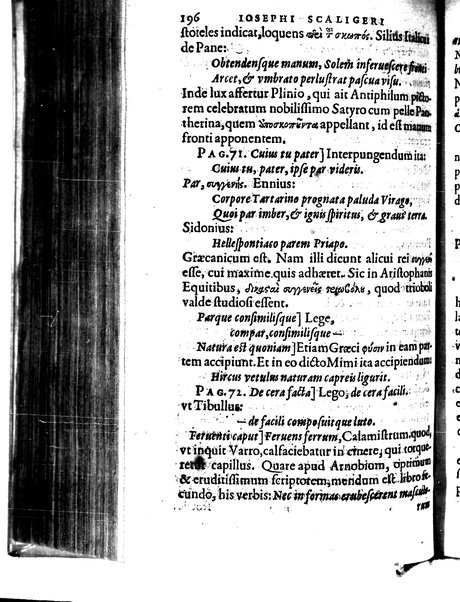 196 IOSEPHI SCALIGERI
stoieles indicat, loquens σκοπός. Silius Italicus
de Pane:
Obtendensque manum, Solem inferuescere fronti
Arcet, & vmbrato perlustrat pascua visu.
Inde lux affertur Plinio, qui ait Antiphilum picto-
rem celebratum nobilissimo Satyro cum pelle Pan-
therina, quem ἀποσκοπεῦντα appellant, id est manum
fronti apponentem.
PAG. 71. Cuius tu pater] Interpungendum ita:
Cuius tu, pater, ipse par videris.
Par, συγγενής. Ennius:
Corpore Tartarino prognata paluda Virago,
Quoi par imber, & ignis spiritus, & grauis terra.
Sidonius:
Hellespontiaco parem Priapo.
Græcanicum est. Nam illi dicunt alicui rei συγγενῆ
esse, cui maxime quis adhæret. Sic in Aristophanis
Equitibus, συγγενεῖς τριωβόλου, quod trioboli
valde studiosi essent.
Parque consimilisque] Lege,
compar, consimilisque —
Natura est quoniam] Etiam Græci φύσιν in eam par-
tem accipiunt. Et in eo dicto Mimi ita accipiendum:
Hircus vetulus naturam capreis ligurit.
PAG. 72. De cera facta] Lego, de cera facili.
vt Tibullus:
— de facili composuitque luto.
Feruenti caput] Feruens ferrum, Calamistrum. quod,
vt inquit Varro, calfaciebatur in cinere, qui torque-
retur capillus. Quare apud Arnobium, optimum
& eruditissimum scriptorem, mendum est libro se-
cundo, his verbis: Nec in formas erubescerent masculi-